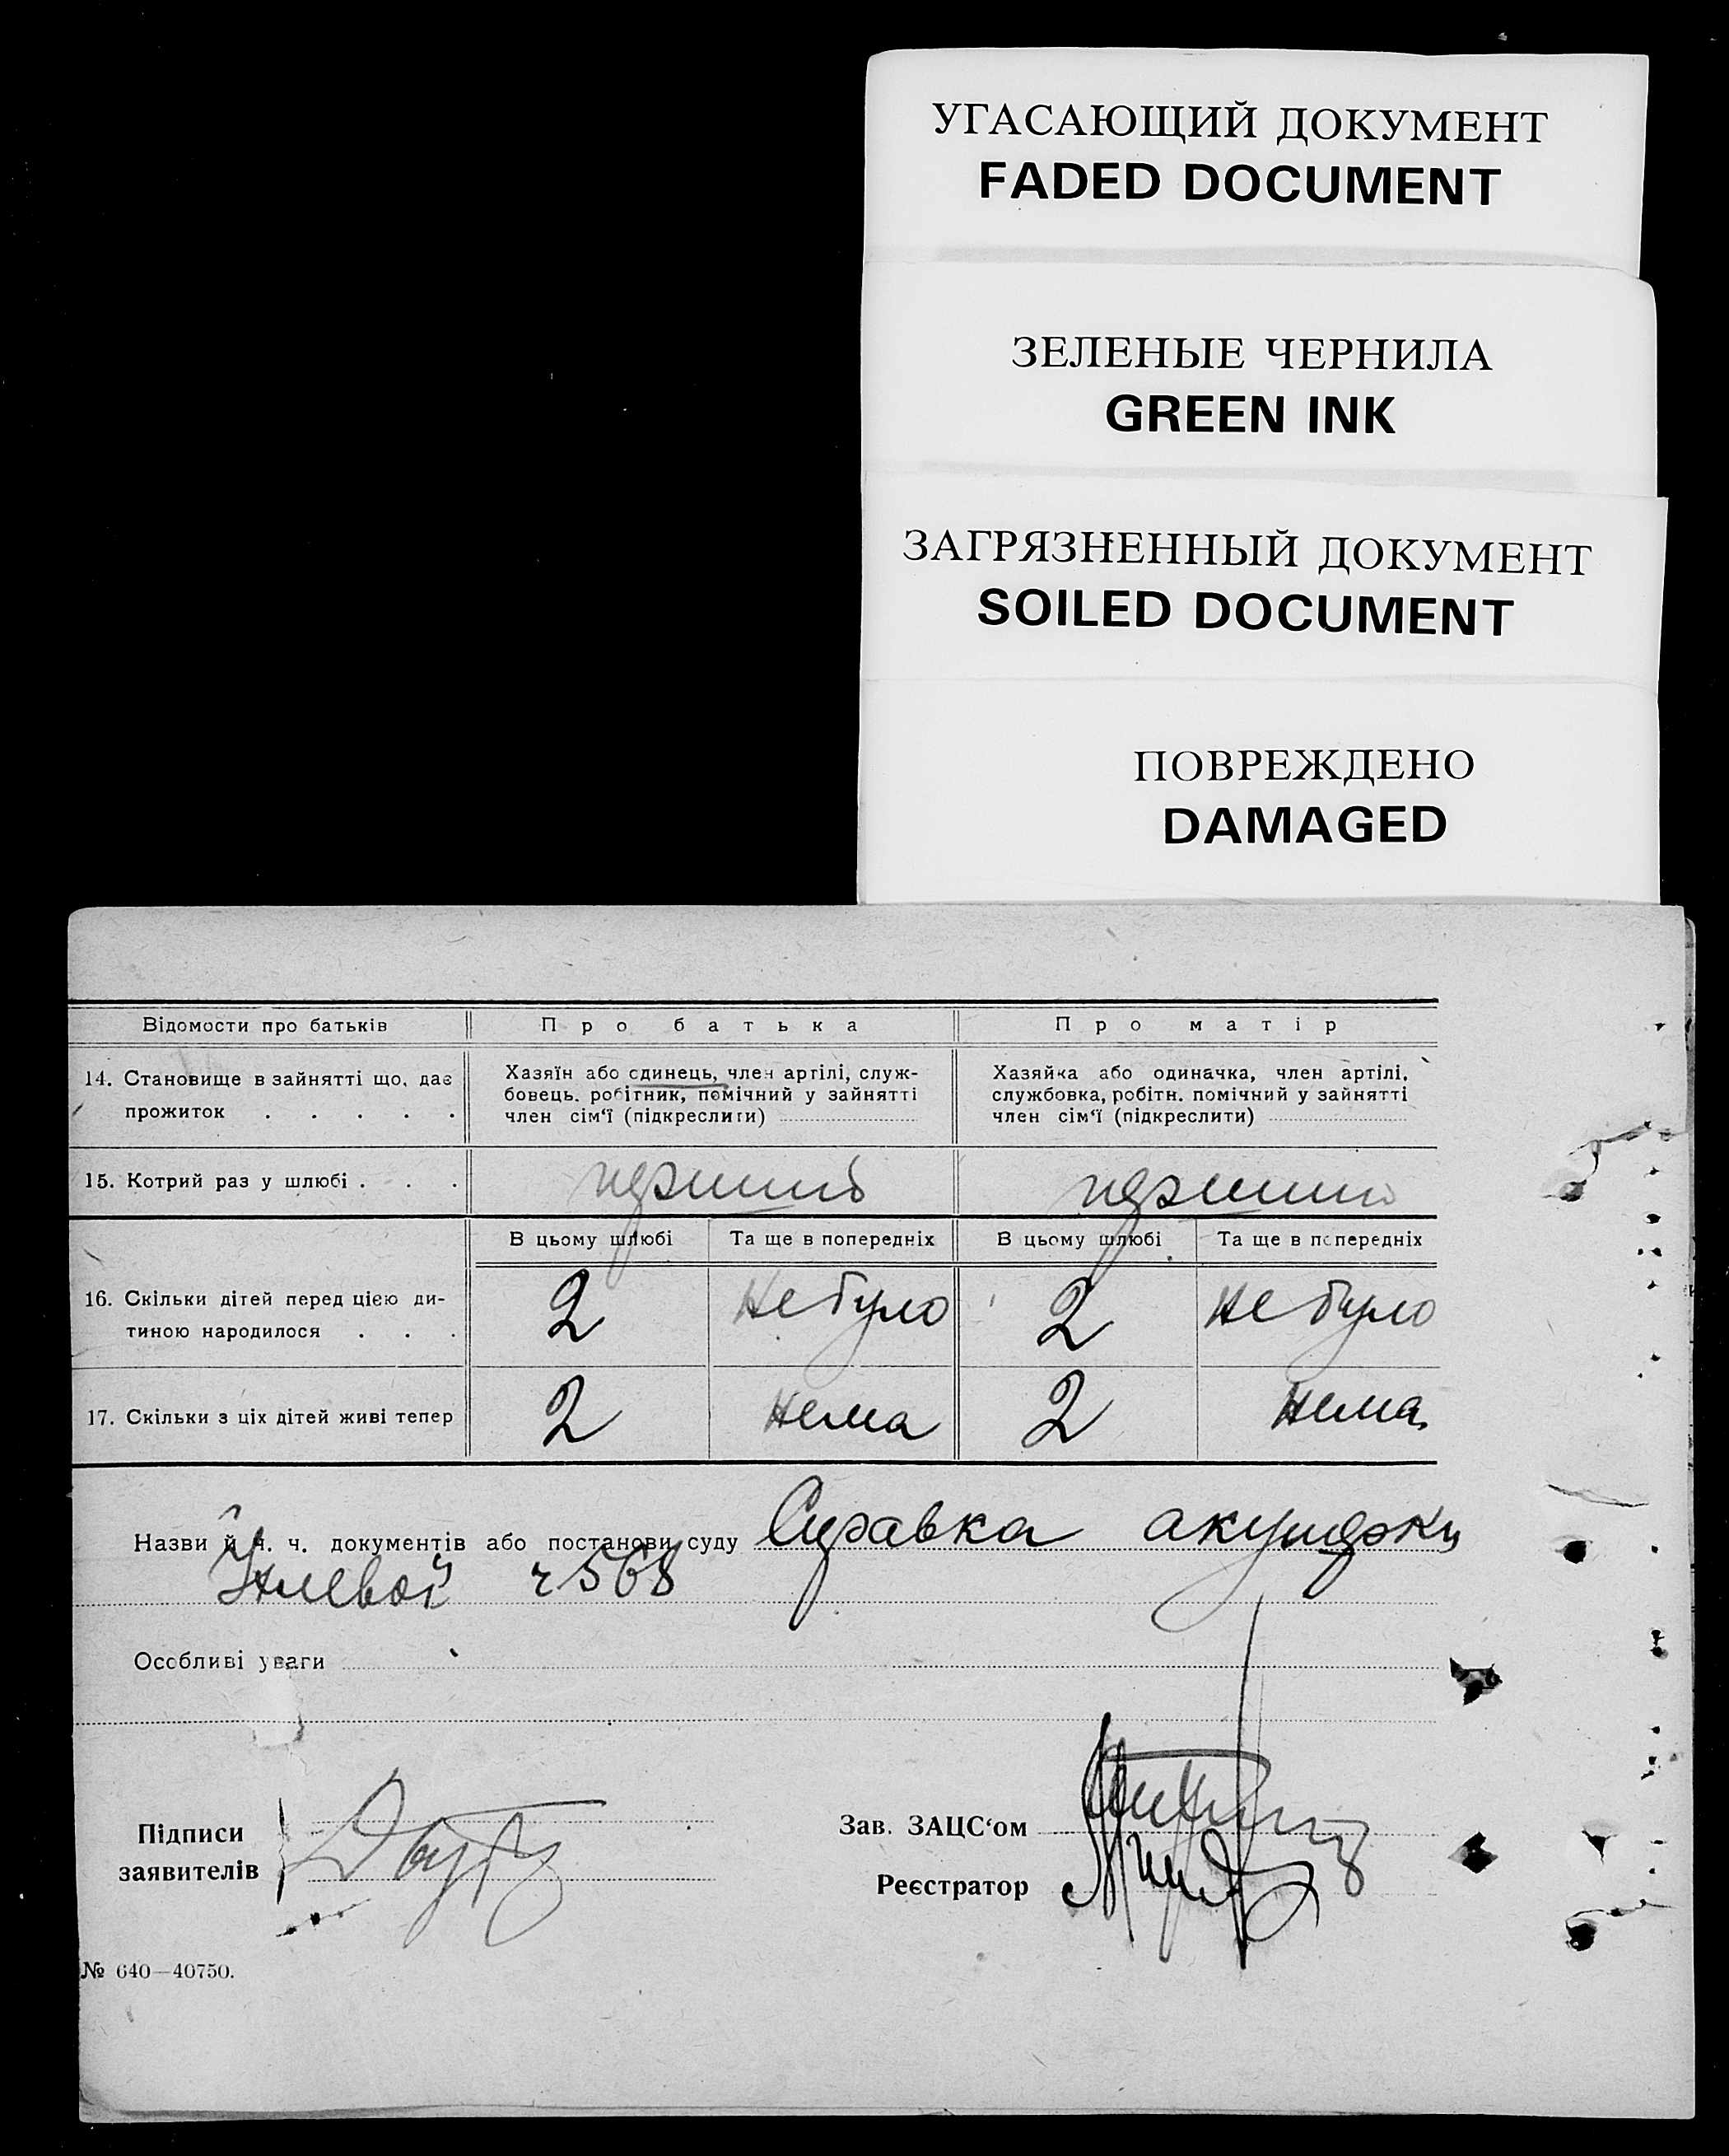 УГАСАЮЩИЙ ДОКУМЕНТ
FADED DOCUMENT
ЗЕЛЕНЫЕ ЧЕРНИЛА
GREEN INK
ЗАГРЯЗНЕННЫЙ ДОКУМЕНТ
SOILED DOCUMENT
ПОВРЕЖДЕНО
DAMAGED
Відомости про батьків
Про батька
Про матір
14. Становище в зайнятті що, дає
прожиток . . . . .
Хазяїн або єдинець, член артілі, служ-
бовець. робітник, помічний у зайнятті
член сім'ї (підкреслити)
Хазяйка або одиначка, член артілі,
службовка, робітн. помічний у зайнятті
член сім'ї (підкреслити)
15. Котрий раз у шлюбі . . .
перший
перший
В цьому шлюбі
Та ще в попередніх
В цьому шлюбі
Та ще в попередніх
16. Скільки дітей перед цією ди-
тиною народилося . . .
2
не було
2
не було
17. Скільки з ціх дітей живі тепер
2
нема
2
нема
Назви й ч. ч. документів або постанови суду Справка акушерки
ч 568
Особливі уваги
Підписи
заявителів
Зав. ЗАЦС'ом
Реєстратор
№ 640—40750.